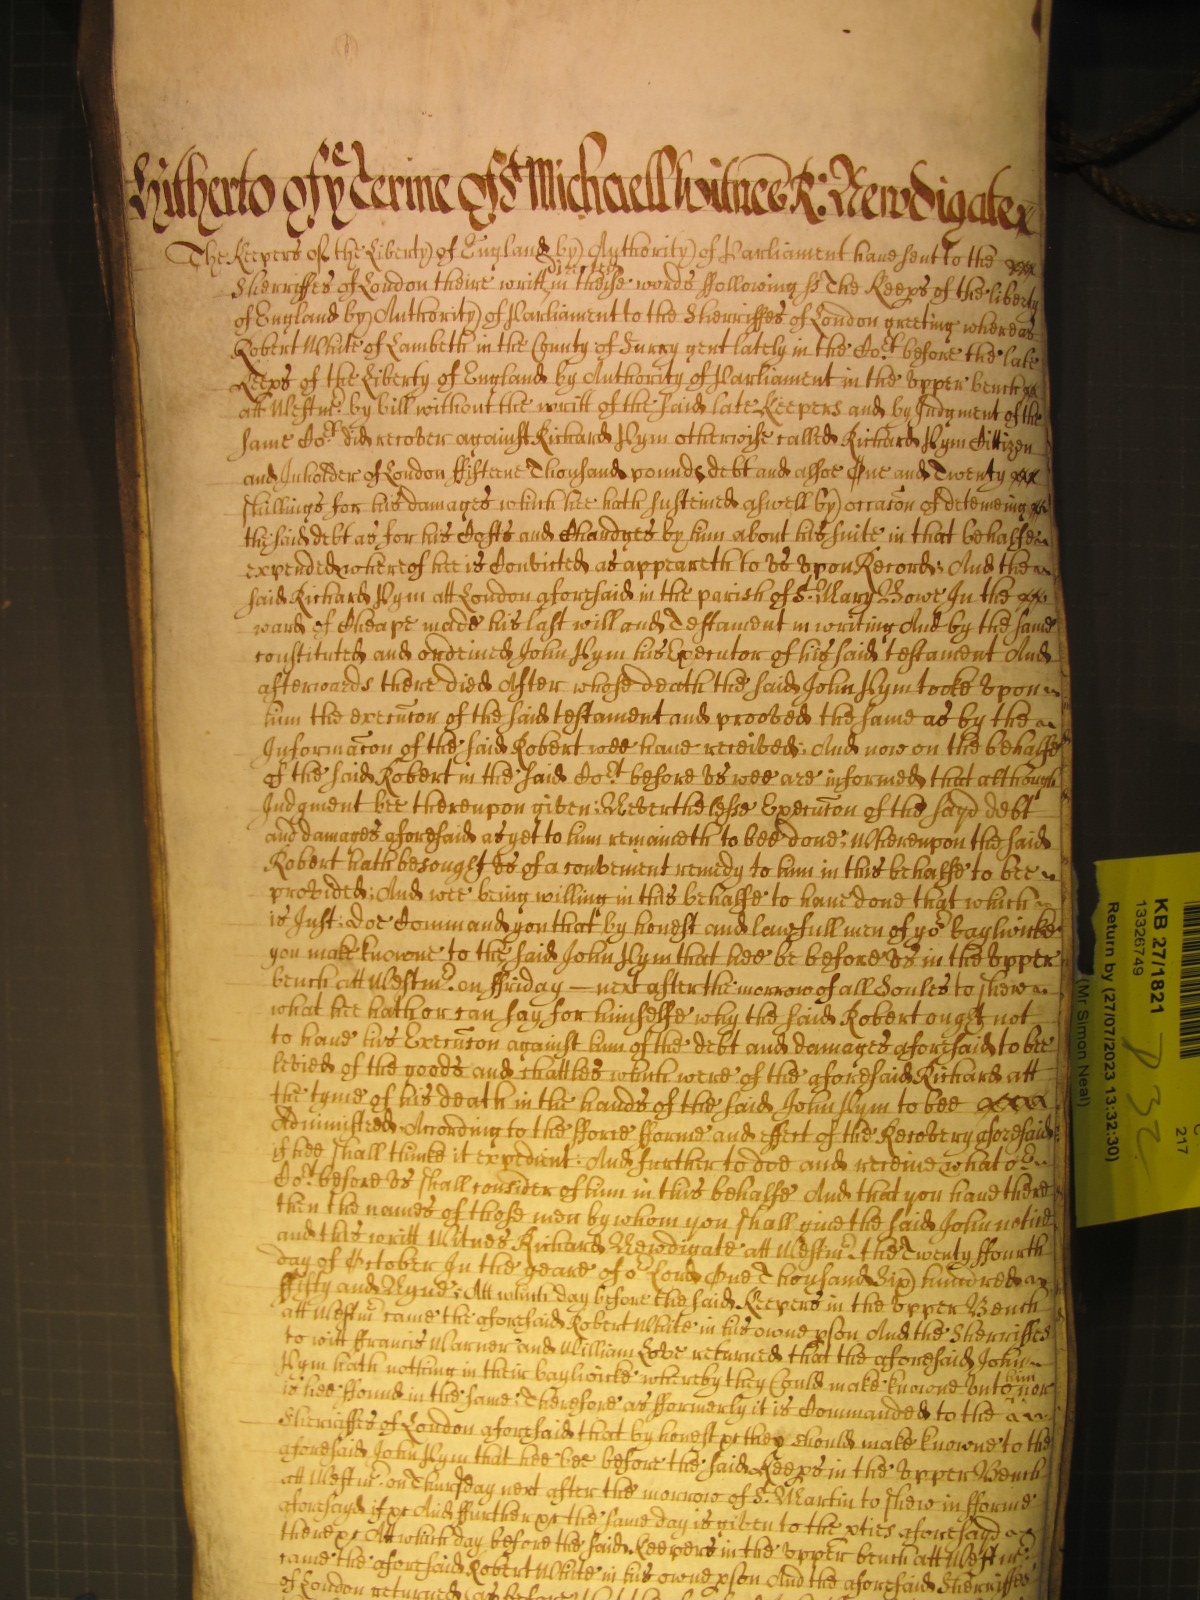 Hitherto of ye terme of St Michaell Witnes R: Newdigate
The Keepers of the Liberty of England by Authority of Parliament have sent to the xxx
Sherriffes of London theire writt in these words ffollowing ss The Keeps of the liberty
of England by Authority of Parliament to the Sherriffes of London greeting whereas
Robert White of Lambeth in the County of Surry gent lately in the Cort before the late
Keeps of the Liberty of England by Authority of Parliament in the Upper bench xx
att Westmr by bill without the writt of the said late Keepers and by Judgment of the
same Cort did recover against Richard Pym otherwise called Richard Pym Cittizen
and Inholder of London ffifteene Thousand pounds debt and alsoe One and Twenty xxx
shillings for his damages which hee hath susteined aswell by occacon of deteineing xx
the said debt as for his Costs and Chardges by him about his suite in that behalfe
expended whereof hee is Convicted as appeareth to us upon Record; And the
said Richard Pym att London aforesaid in the parish of St Mary Bowe In the xx
ward of Cheape made his last will and Testament in writing And by the same
constituted and ordeined John Pym his Executor of his said testament And
afterwards there died After whose death the said John Pym tooke upon
him the execucon of the said testament and prooved the same as by the
Informacon of the said Robert wee have received; And now on the behalfe
of the said Robert in the said Cort before us wee are informed that although
Judgment bee thereupon given: Neverthelesse Execucon of the sayd debt
and damages aforesaid as yet to him remaineth to bee done; Whereupon the said
Robert hath besought us of a convenient remedy to him in this behalfe to bee
provided; And wee being willing in this behalfe to have done that which
is Just: doe Command you that by honest and lawfull men of yor baylwicke
you make knowne to the said John Pym that hee be before us in the upper
bench att Westmr on ffriday — next after the morrow of all Soules to shew
what hee hath or can say for himselfe why the said Robert ought not
to have his Execucon against him of the debt and damages aforesaid to bee
levied of the goods and chattles which were of the aforesaid Richard att
the tyme of his death in the hands of the said John Pym to bee xxxx
Administred According to the fforce fforme and effect of the Recovery aforesaid
if hee shall thinke it expedient: And further to doe and receive what or
Cort before us shall consider of him in this behalfe And that you have there
then the names of those men by whom you shall give the said John notice
and this writt Witnes Richard Newdigate att Westmr the Twenty ffourth
day of October In the yeare of or Lord One Thousand Six hundred
ffifty and Nyne; Att which day before the said Keepers in the upper Bench
att Westmr came the aforesaid Robert White in his owne pson And the Sherriffes
to witt Francis Warner and William Love returned that the aforesaid John
Pym hath nothing in their baylwicke whereby they Could make knowne unto him nor
is hee ffound in the same; Therefore as fformerly it is Commanded to the
Sherriffes of London aforesaid that by honest xc they should make knowne to the
aforesaid John Pym that hee bee before the said Keeps in the Upper Bench
att Westmr on Thursday next after the morrow of St Martin to shew in fforme
aforesayd if xc And ffurther xc the same day is given to the pties aforesayd
there xc Att which day before the said Keepers in the upper bench att Westmr
came the aforesaid Robert White in his owne pson And the aforesaid Sherriffes
of London returned as before
KB 27/1821
13326749
Return by (27/07/2023 13:32:30)
(Mr Simon Neal)
217